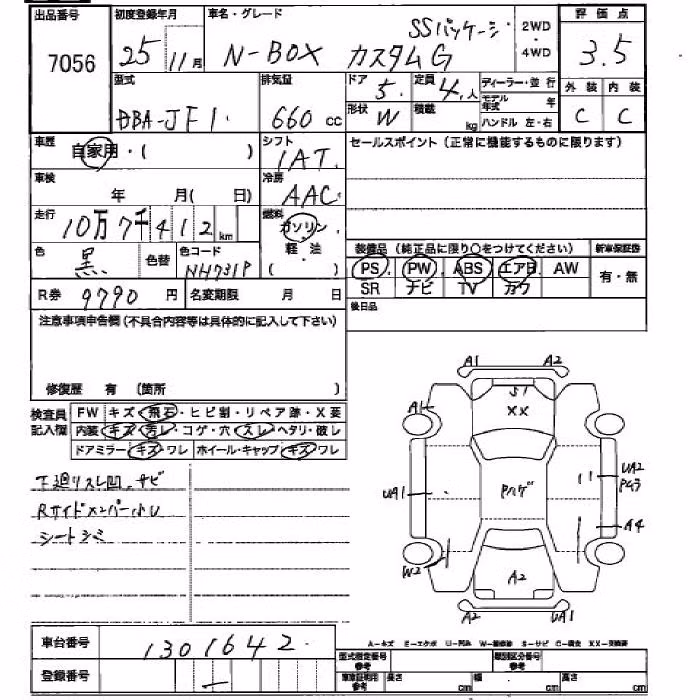 出品番号 初度登録年月 車名・グレード 評価点
7056 25 11月 N-BOX カスタムG SSパッケージ 2WD・4WD 3.5
型式 排気量 ドア 5. 定員 4.人 ディーラー・並行 外装 内装
DBA-JF1. 660cc 形状 W 積載 kg モデル年式 年 C C
ハンドル 左・右
車歴 自家用・( ) シフト 1AT. セールスポイント(正常に機能するものに限ります)
車検 年 月( 日) 冷房 AAC.
走行 10万7千412km 燃料 ガソリン・軽・油 ( )
色 黒. 色替 色コード NH731P 装備品(純正品に限り○をつけてください) 新車保証書
PS PW ABS エアB AW 有・無
SR ナビ TV カワ
R券 9790円 名変期限 月 日 後日品
注意事項申告欄(不具合内容等は具体的に記入して下さい)
修復歴 有 (箇所 )
検査員記入欄 FW キズ・飛石・ヒビ割・リペア跡・X要
内装 キズ・汚レ・コゲ・穴・スレ・ヘタリ・破レ
ドアミラー キズ・ワレ ホイール・キャップ キズ・ワレ
下廻リスレ凹.サビ
Rサイドメンバー小U
シートシミ
A1 A2
S1
A1 XX
UA1 Pハゲ UA2
Pムラ
A4
W2
A2
A2 UA1
車台番号 1301642.
登録番号 —
A-キズ E-エクボ U-凹み W-補修跡 S-サビ C-腐食 XX-交換済
型式指定番号参考 類別区分番号参考
車庫証明用参考 長さ cm 幅 cm 高さ cm